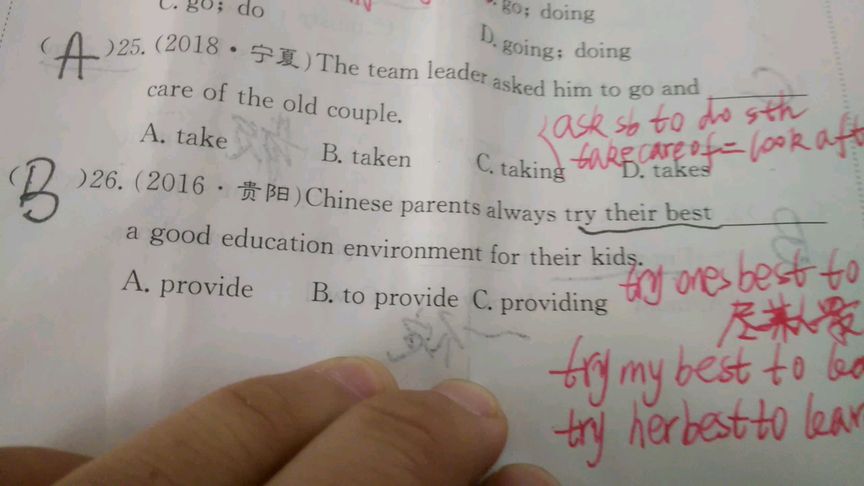 C. go; do
go; doing
D. going; doing
(A)25. (2018·宁夏)The team leader asked him to go and ______
care of the old couple.
ask sb to do sth
take care of = look aft
A. take B. taken C. taking D. takes
(B)26. (2016·贵阳)Chinese parents always try their best ______
a good education environment for their kids.
try ones best to
A. provide B. to provide C. providing
try my best to lea
try her best to lear